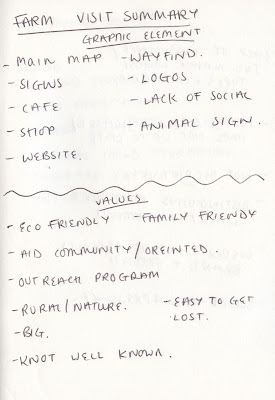 FARM VISIT SUMMARY
GRAPHIC ELEMENT
- MAIN MAP - WAYFIND.
- SIGNS - LOGOS
- CAFE - LACK OF SOCIAL
- SHOP - ANIMAL SIGN.
- WEBSITE.
VALUES
- ECO FRIENDLY - FAMILY FRIENDY
- AID COMMUNITY/OREINTED.
- OUTREACH PROGRAM
- RURAL/NATURE. - EASY TO GET
LOST.
- BIG.
- KNOT WELL KNOWN.